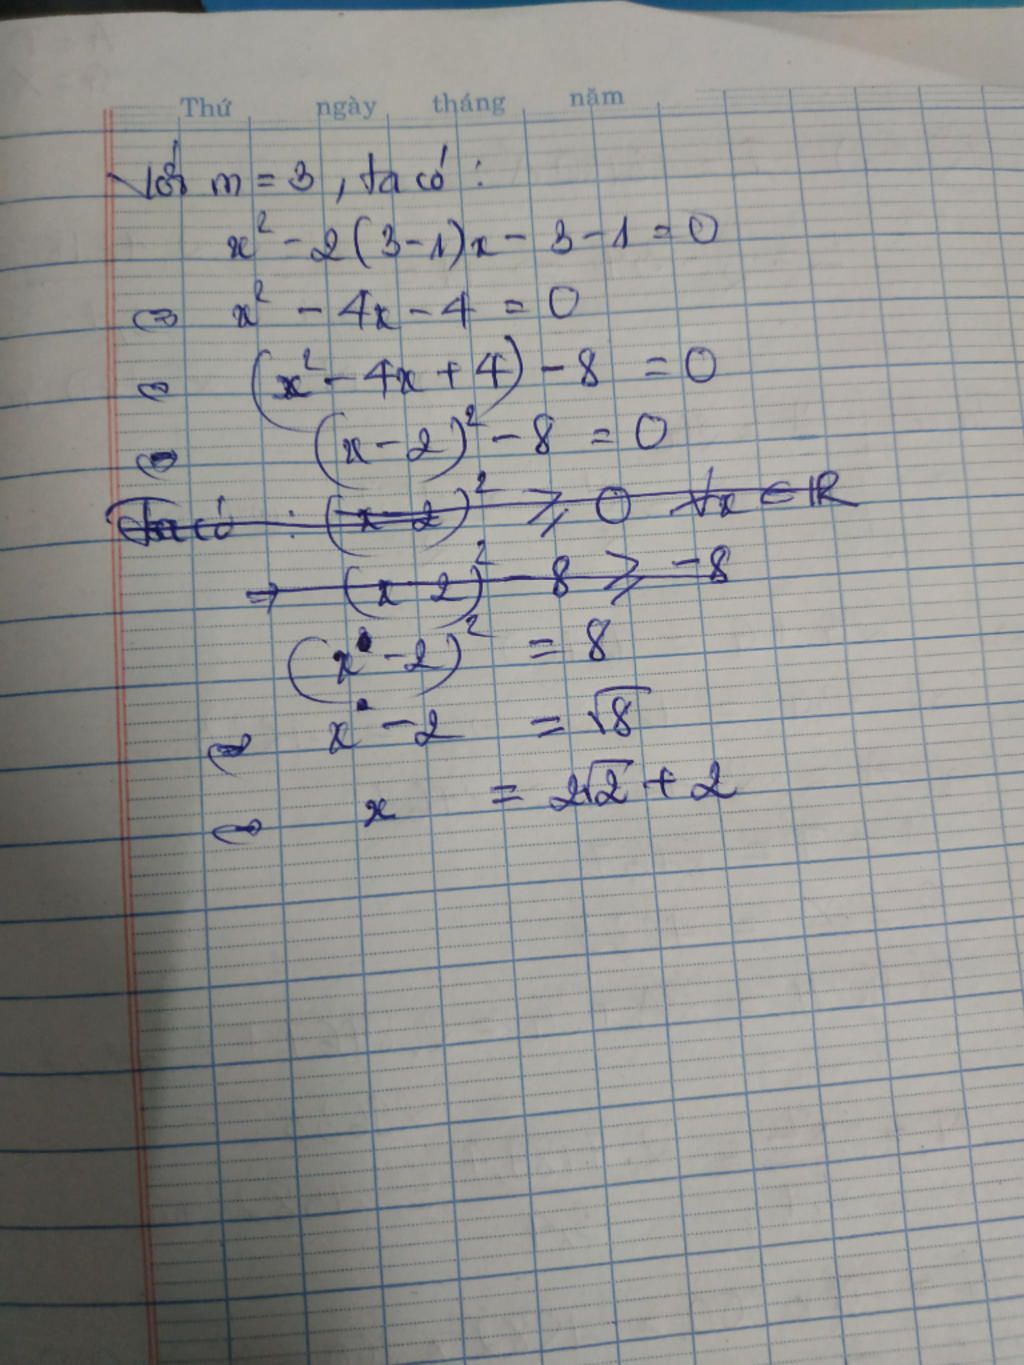 Thứ ngày tháng năm
Với m = 3, ta có :
x² - 2(3-1)x - 3 - 1 = 0
⇔ x² - 4x - 4 = 0
⇔ (x² - 4x + 4) - 8 = 0
⇔ (x - 2)² - 8 = 0
Ta có : (x - 2)² ⩾ 0 ∀x ∈ ℝ
→ (x - 2)² - 8 ⩾ -8
(x - 2)² = 8
⇔ x - 2 = √8
⇔ x = 2√2 + 2